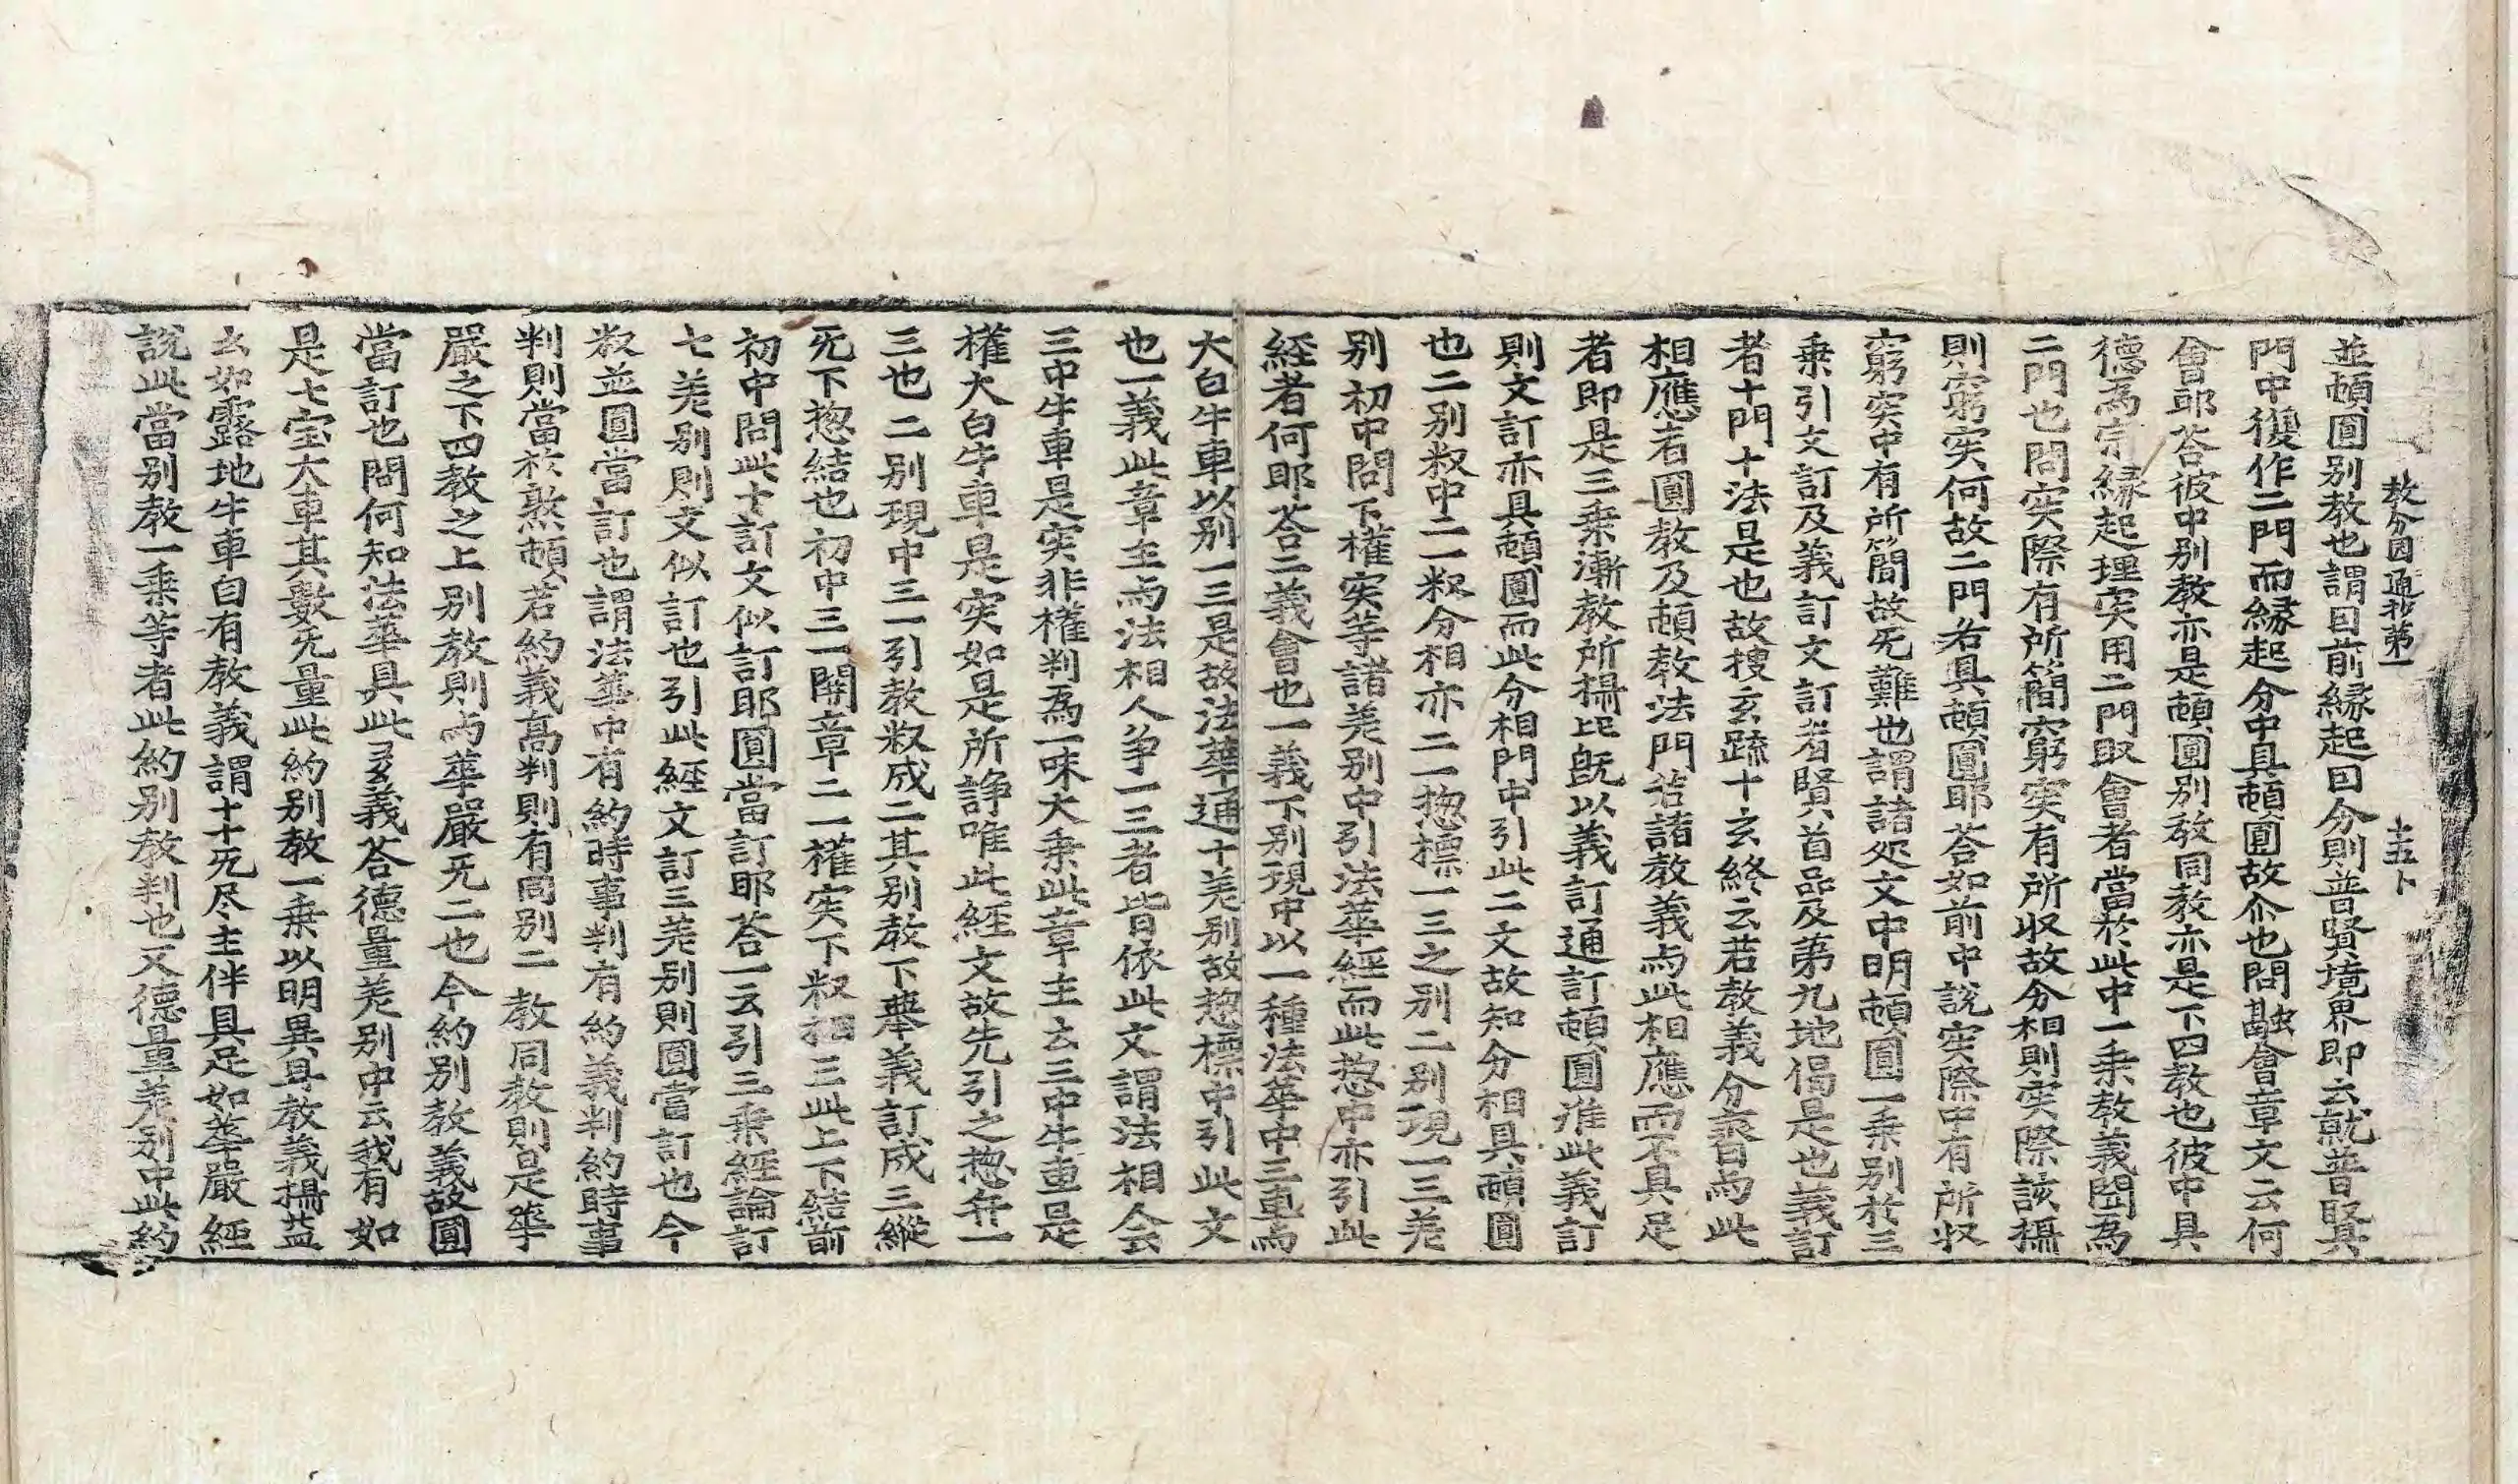 教分因通抄第一　十五卜
並頓圓別教也謂因前縁起因分則普賢境界即云就普賢
門中復作二門而縁起分中具頓圓故尒也問融會章文云何
會耶荅彼中別教亦是頓圓別教同教亦是下四教也彼中具
德爲宗縁起理实用二門取會者當於此中一乗教義開為
二門也問实際有所簡窮实有所收故分相則实際該攝
則窮实何故二門各具頓圓耶荅如前中說实際中有所收
窮实中有所簡故旡難也謂諸処文中明頓圓一乗別於三
乗引文訂及義訂文訂者賢首品及第九地偈是也義訂
者十門十法是也故搜玄䟽十玄終云若教義分齊与此
相應者圓教及頓教法門若諸教義与此相應而不具足
者即是三乗漸教所攝此旣以義訂通訂頓圓准此義訂
則文訂亦具頓圓而此分相門中引此二文故知分相具頓圓
也二別釈中二一釈分相亦二一惣標一三之別二別現一三差
別初中問下權实䓁諸差別中引法華經而此惣中亦引此
経者何耶荅二義會也一義下別現中以一種法華中三車与
大白牛車以別一三是故法華通十差別故惣標中引此文
也一義此章主与法相人争一三者皆依此文謂法相人会
三中牛車是实非權判爲一味大乗此章主云三中牛車是
權大白牛車是实如是所諍唯此經文故先引之惣弁一
三也二別現中三一引教釈成二其別教下擧義訂成三縱
旡下惣結也初中三一開章二一權实下釈相三此上下結前
初中問此十訂文似訂耶圓當訂耶荅一云引三乗經論訂
七差別則文似訂也引此經文訂三差別則圓當訂也今
釈並圓當訂也謂法華中有約時事判有約義判約時事
判則當於熟頓若約義高判則有同別二教同教則是華
嚴之下四教之上別教則与華嚴旡二也今約別教義故圓
當訂也問何知法華具此多義荅德量差別中云我有如
是七宝大車其數旡量此約別教一乗以明異耳教義攝益
云如露地牛車自有教義謂十十旡尽主伴具足如華嚴經
說此當別教一乗等者此約別教判也又德量差別中此約